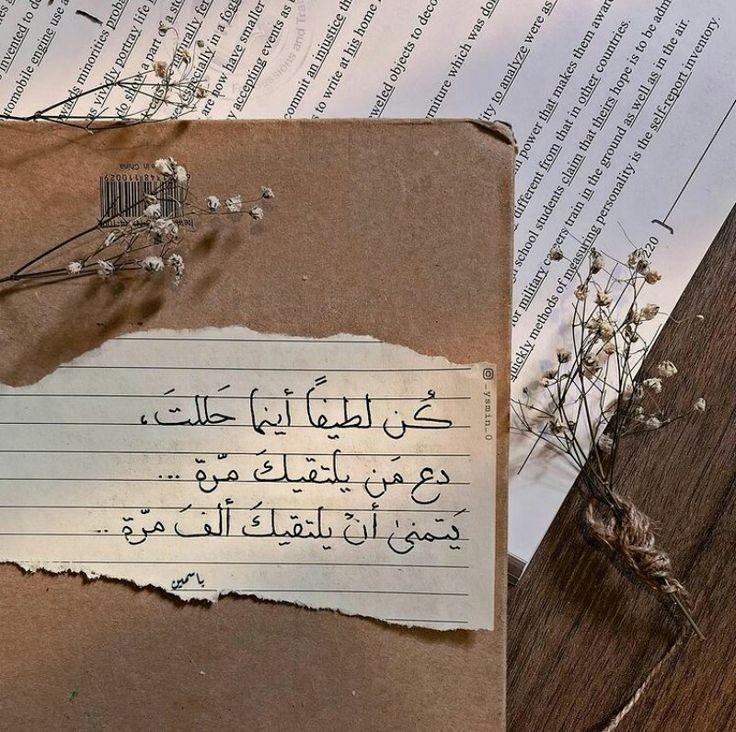 invented to d
utomobile engine use a
wards minorities proba
as vividly portray life i
to show a part
especially in a fogg
are not have smaller
y accepting events as
commit an injustice tha
s to write at his home
weled objects to deco
rniture which was don
ity to analyze were as
power that makes them awar
different from that in other countries.
school students claim that theirs hope is to be adm
for military careers train in the ground as well as in the air.
quickly methods of measuring personality is the self-report inventory.
220
Made in China
كُن لطيفاً أينما حَللتَ،
دع مَن يلتقيكَ مرّة ...
يَتمنىٰ أنْ يلتقيكَ ألفَ مرّة ..
ياسمين
_ysmin_0